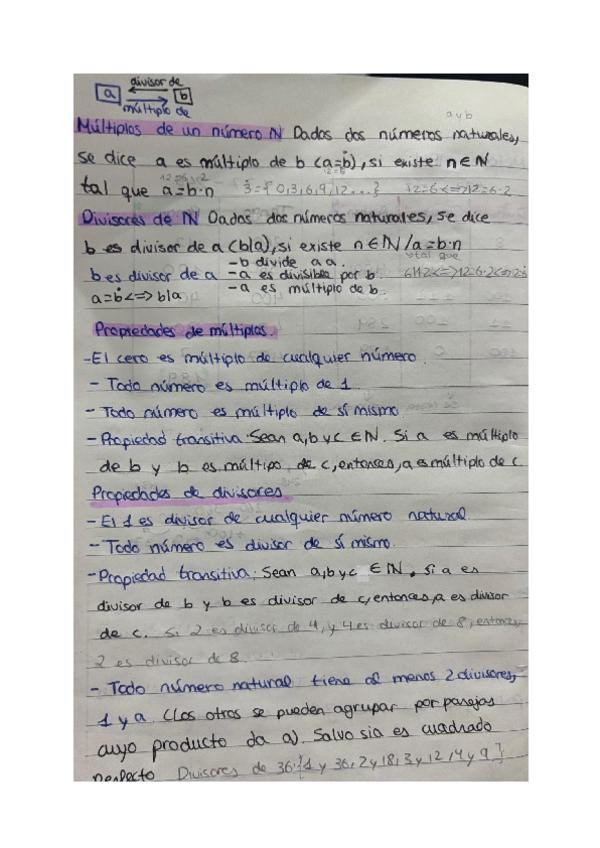 divisor de
a b
múltiplo de
a y b
Múltiplos de un número N Dados dos números naturales,
se dice a es múltiplo de b (a=ḃ), si existe n∈N
tal que a=b·n 3̇={0,3,6,9,12...} 12=6̇<=>12=6·2
Divisores de N Dados dos números naturales, se dice
b es divisor de a (b|a), si existe n∈N/a=b·n
tal que
-b divide a a.
b es divisor de a -a es divisible por b. 6|12<=>12=6·2<=>12=6̇
a=ḃ<=>b|a -a es múltiplo de b.
Propiedades de múltiplos.
-El cero es múltiplo de cualquier número.
- Todo número es múltiplo de 1
- Todo número es múltiplo de sí mismo
- Propiedad transitiva: Sean a,b y c ∈ N. Si a es múltiplo
de b y b es múltipo de c, entonces, a es múltiplo de c
Propiedades de divisores
- El 1 es divisor de cualquier número natural
- Todo número es divisor de sí mismo.
- Propiedad transitiva: Sean a,b y c ∈ N. si a es
divisor de b y b es divisor de c, entonces, a es divisor
de c. Si 2 es divisor de 4, y 4 es divisor de 8, entonces
2 es divisor de 8.
- Todo número natural tiene al menos 2 divisores,
1 y a. (Los otros se pueden agrupar por parejas
cuyo producto da a). Salvo si a es cuadrado
perfecto Divisores de 36:{1 y 36, 2 y 18, 3 y 12, 4 y 9}